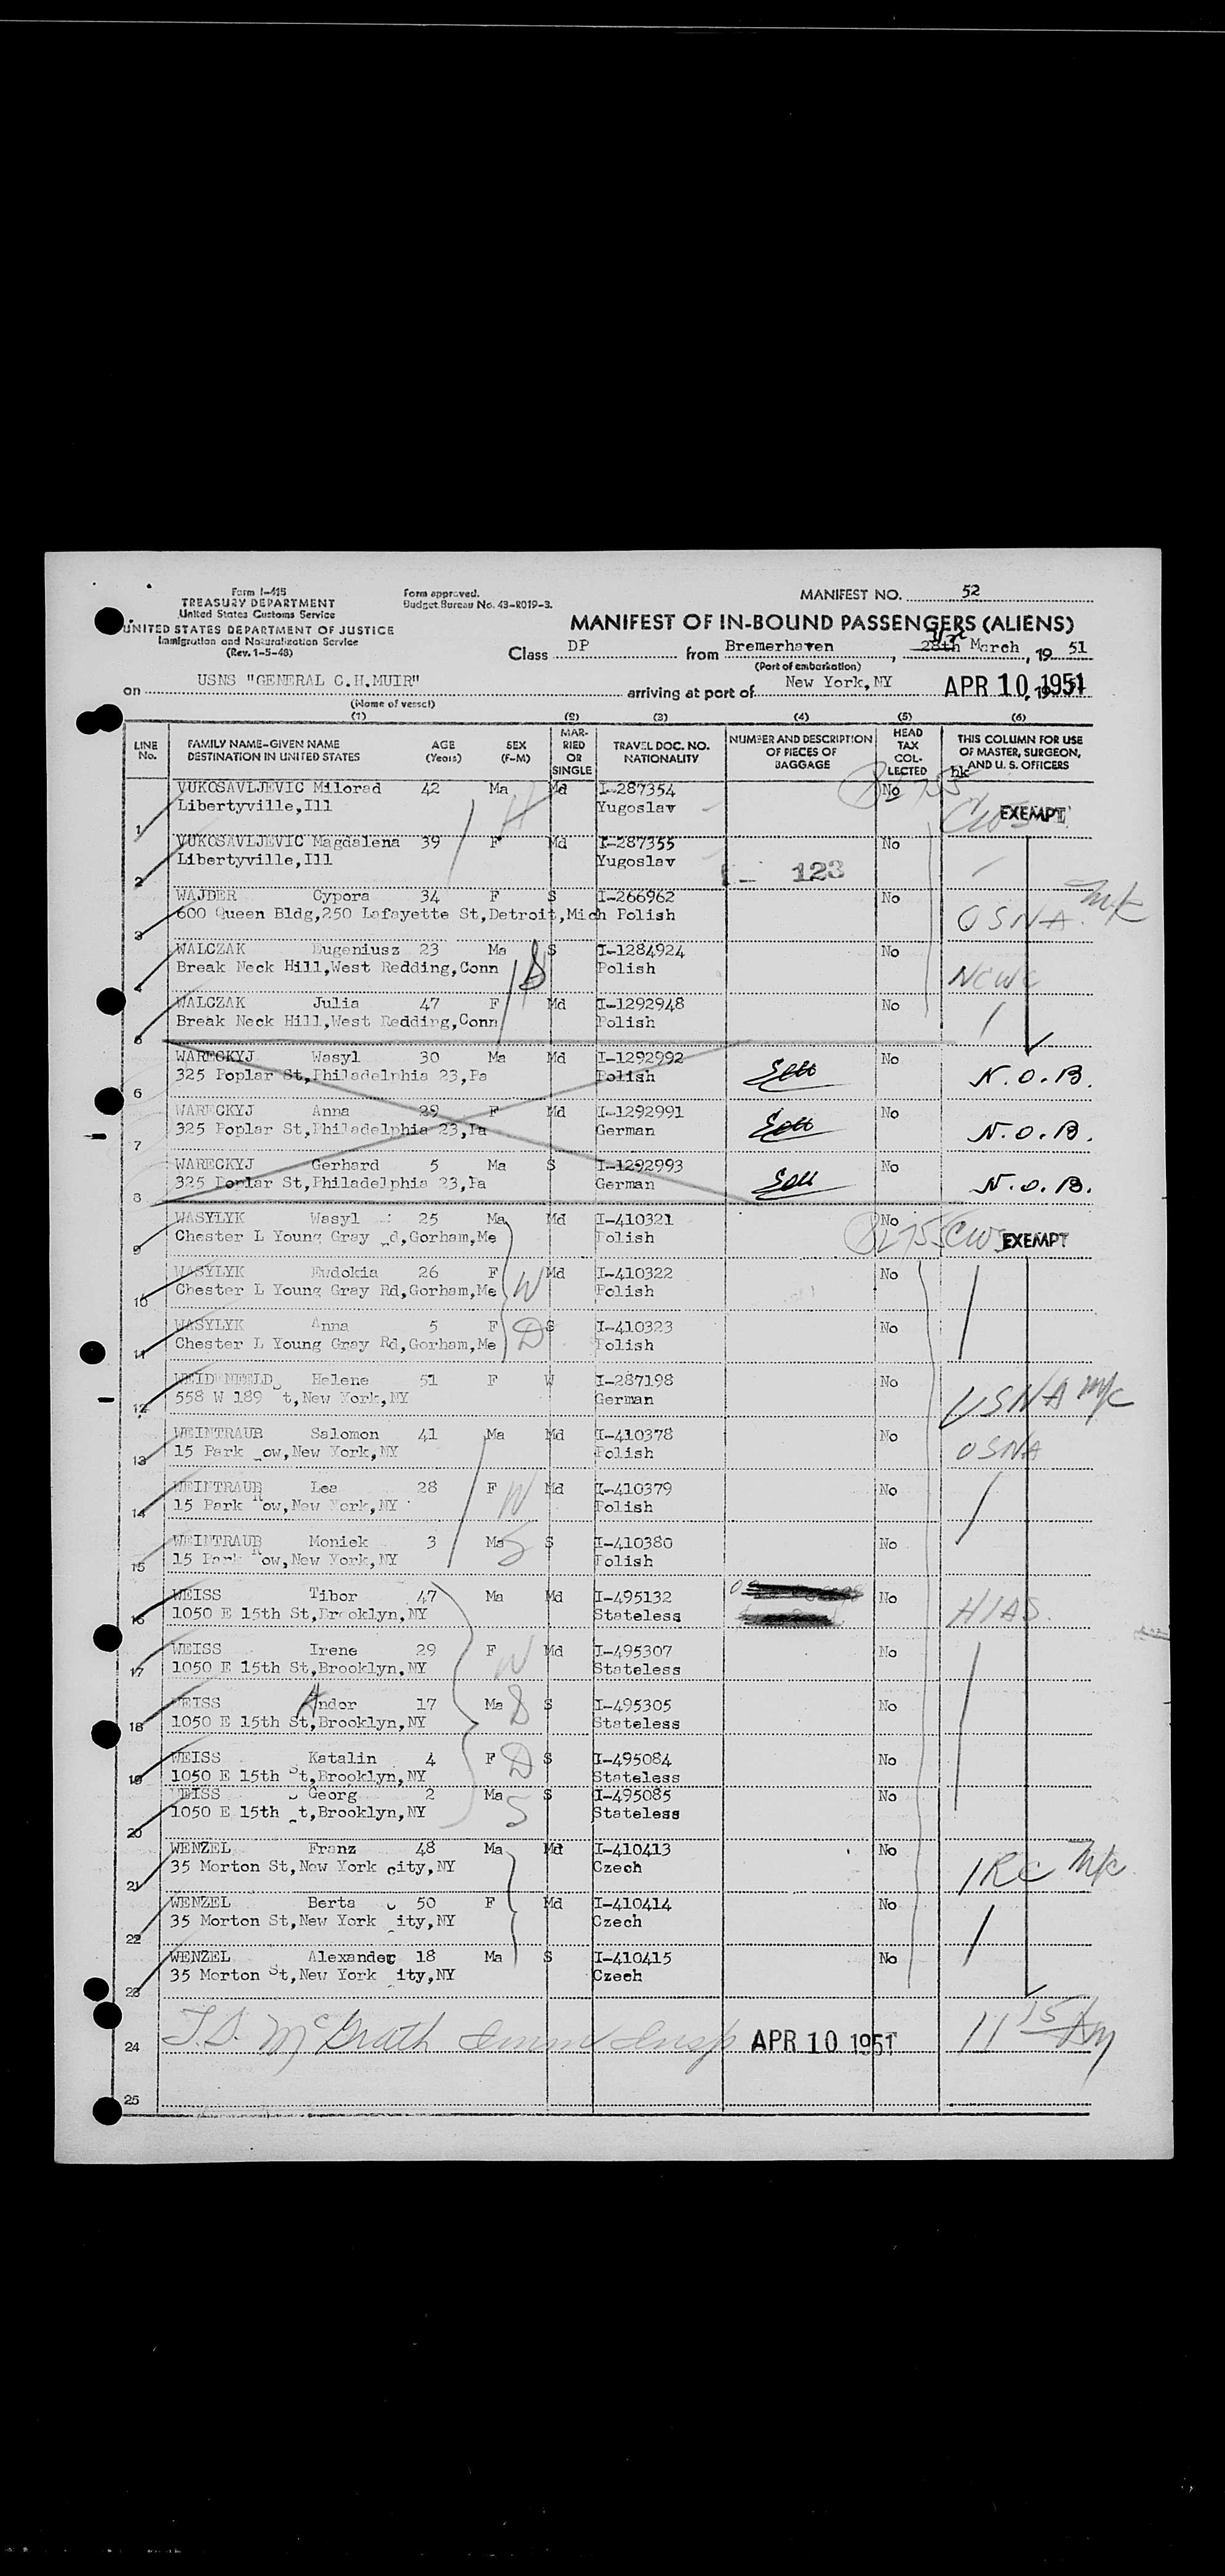 Form I-415
TREASURY DEPARTMENT
United States Customs Service
UNITED STATES DEPARTMENT OF JUSTICE
Immigration and Naturalization Service
(Rev. 1-5-48)
Form approved.
Budget Bureau No. 43-R019-3.
MANIFEST NO. 52
MANIFEST OF IN-BOUND PASSENGERS (ALIENS)
Class DP from Bremerhaven, 28th March, 19 51
(Port of embarkation)
on USNS "GENERAL C.H.MUIR" arriving at port of New York,NY APR 10 1951
(Name of vessel)
(1) (2) (3) (4) (5) (6)
LINE No. FAMILY NAME-GIVEN NAME DESTINATION IN UNITED STATES AGE (Years) SEX (F-M) MARRIED OR SINGLE TRAVEL DOC. NO. NATIONALITY NUMBER AND DESCRIPTION OF PIECES OF BAGGAGE HEAD TAX COLLECTED THIS COLUMN FOR USE OF MASTER, SURGEON, AND U. S. OFFICERS
VUKOSAVLJEVIC Milorad 42 Ma Md I-287354 No
1 Libertyville,Ill Yugoslav CWS EXEMPT
VUKOSAVLJEVIC Magdalena 39 F Md I-287355 No
2 Libertyville,Ill Yugoslav 123
WAJDER Cypora 34 F S I-266962 No
3 600 Queen Bldg,250 Lafayette St,Detroit,Mich Polish USNA
WALCZAK Eugeniusz 23 Ma S I-1284924 No
4 Break Neck Hill,West Redding,Conn Polish NCWC
WALCZAK Julia 47 F Md I-1292948 No
5 Break Neck Hill,West Redding,Conn Polish
WARECKYJ Wasyl 30 Ma Md I-1292992 No
6 325 Poplar St,Philadelphia 23,Pa Polish N.O.B.
WARECKYJ Anna 29 F Md I-1292991 No
7 325 Poplar St,Philadelphia 23,Pa German N.O.B.
WARECKYJ Gerhard 5 Ma S I-1292993 No
8 325 Poplar St,Philadelphia 23,Pa German N.O.B.
WASYLYK Wasyl 25 Ma Md I-410321 No
9 Chester L Young Gray d,Gorham,Me Polish CWS EXEMPT
WASYLYK Ewdokia 26 F Md I-410322 No
10 Chester L Young Gray Rd,Gorham,Me W Polish
WASYLYK Anna 5 F S I-410323 No
11 Chester L Young Gray Rd,Gorham,Me D Polish
WEIDENFELD Helene 51 F W I-287198 No
12 558 W 189 t,New York,NY German USNA
WEINTRAUB Salomon 41 Ma Md I-410378 No
13 15 Park ow,New York,NY Polish USNA
WEINTRAUB Lea 28 F Md I-410379 No
14 15 Park Row,New York,NY W Polish
WEINTRAUB Moniek 3 Ma S I-410380 No
15 15 Park Row,New York,NY S Polish
WEISS Tibor 47 Ma Md I-495132 No
16 1050 E 15th St,Brooklyn,NY Stateless HIAS
WEISS Irene 29 F Md I-495307 No
17 1050 E 15th St,Brooklyn,NY W Stateless
WEISS Andor 17 Ma S I-495305 No
18 1050 E 15th St,Brooklyn,NY S Stateless
WEISS Katalin 4 F D S I-495084 No
19 1050 E 15th St,Brooklyn,NY Stateless
WEISS Georg 2 Ma S I-495085 No
20 1050 E 15th t,Brooklyn,NY S Stateless
WENZEL Franz 48 Ma Md I-410413 No
21 35 Morton St,New York city,NY Czech IRC
WENZEL Berta 50 F Md I-410414 No
22 35 Morton St,New York ity,NY Czech
WENZEL Alexander 18 Ma S I-410415 No
23 35 Morton St,New York ity,NY Czech
24 McGrath Immr Insp APR 10 1951 11 15 Am
25